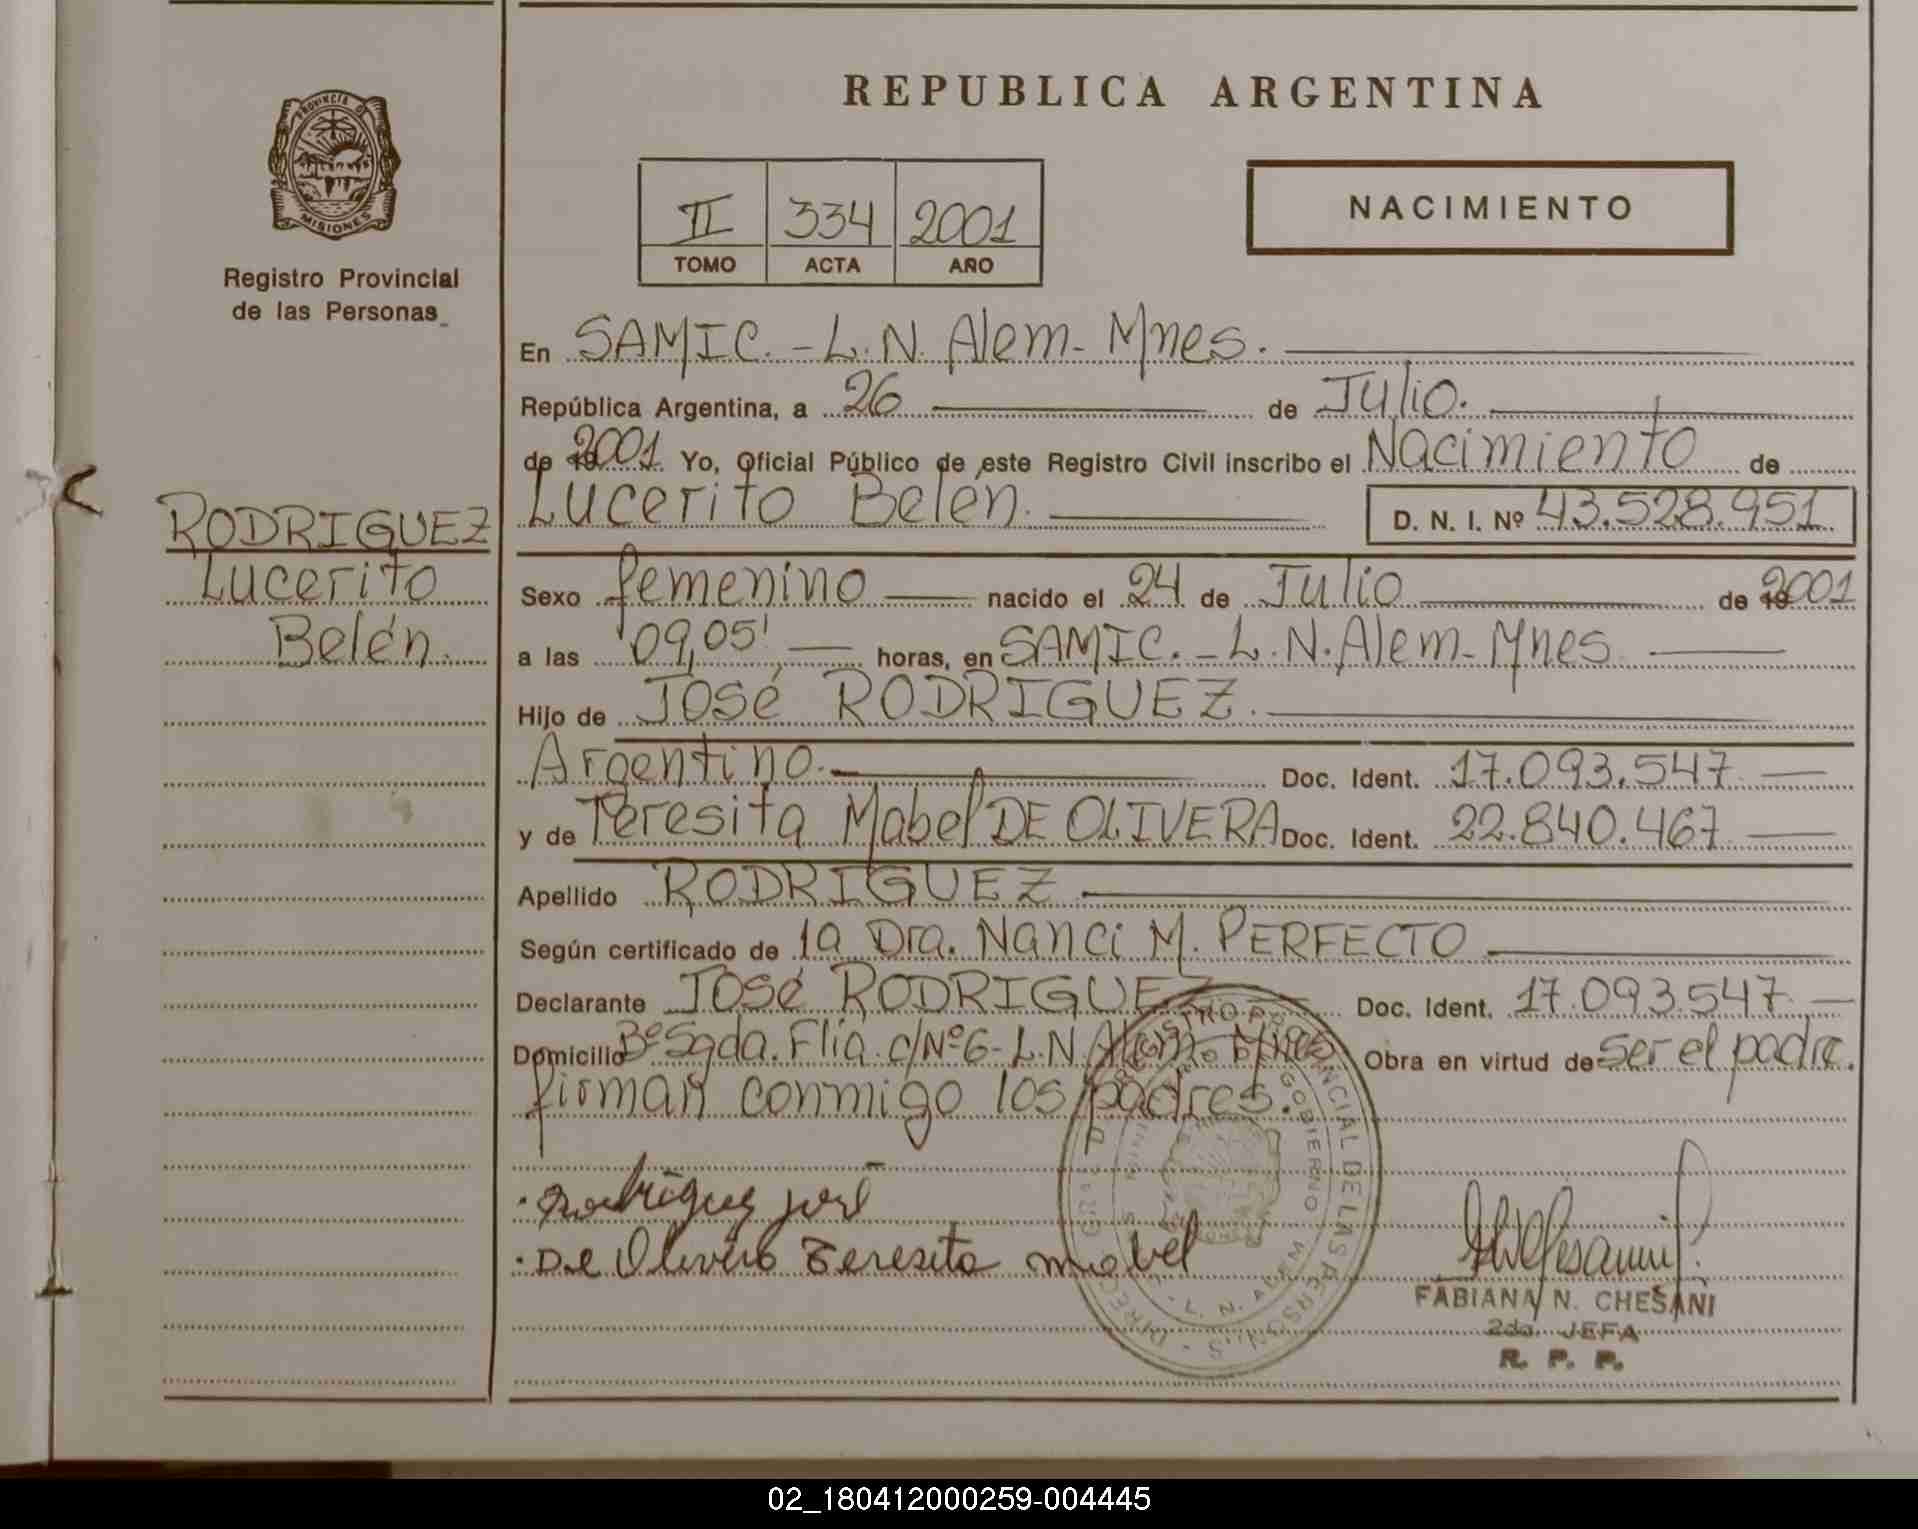 REPUBLICA ARGENTINA
PROVINCIA DE
MISIONES
Registro Provincial
de las Personas
II 334 2001
TOMO ACTA AÑO
NACIMIENTO
En SAMIC.-L.N. Alem-Mnes.
República Argentina, a 26 de Julio.
de 2001 Yo, Oficial Público de este Registro Civil inscribo el Nacimiento de
Lucerito Belén. D. N. I. Nº 43.528.951
RODRIGUEZ
Lucerito
Belén.
Sexo femenino nacido el 24 de Julio de 2001
a las 09,05' horas, en SAMIC.-L.N.Alem-Mnes
Hijo de José RODRIGUEZ.
Argentino. Doc. Ident. 17.093.547
y de Teresita Mabel DE OLIVERA Doc. Ident. 22.840.467
Apellido RODRIGUEZ
Según certificado de la Dra. Nanci M. PERFECTO
Declarante José RODRIGUEZ Doc. Ident. 17.093.547
Domicilio Bº Sgda. Flia. c/Nº6-L.N.Alem-Mnes Obra en virtud de ser el padre.
firman conmigo los padres.
Rodriguez José
De Olivera Teresita Mabel
L. N. ALEM
FABIANA N. CHESANI
2da. JEFA
R. P. P.
02_180412000259-004445